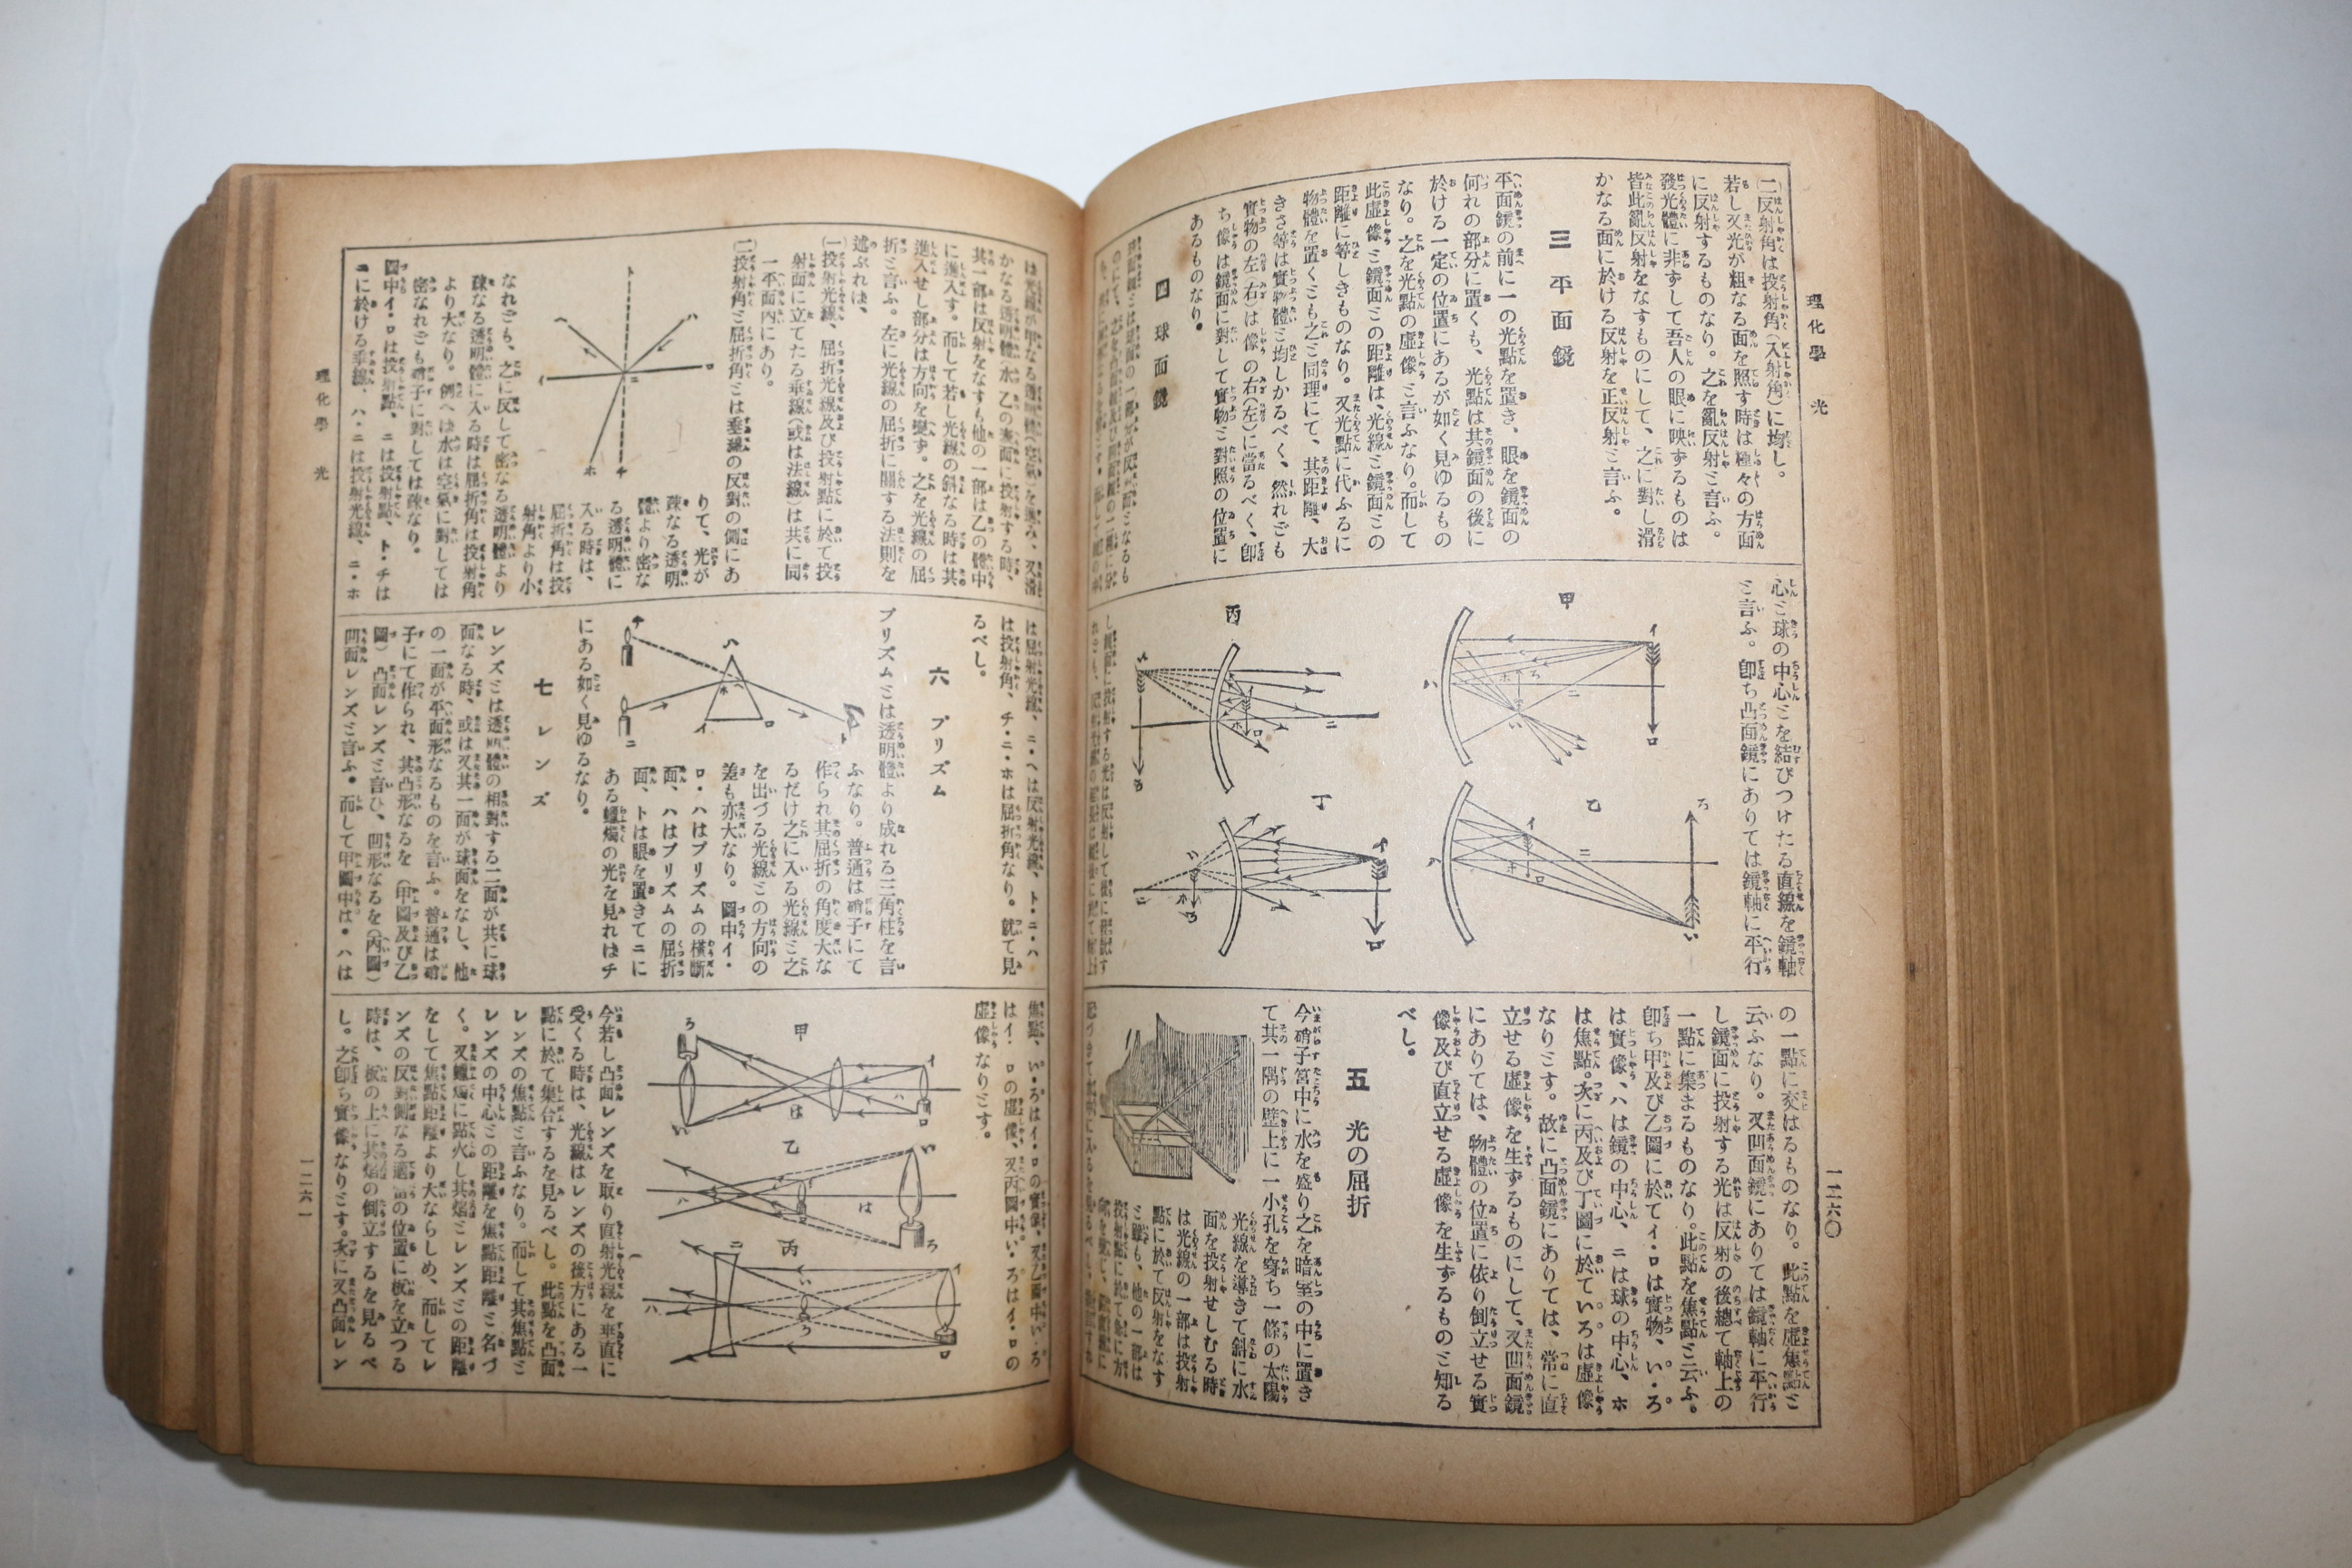 理化學 光
一二六〇
(二)反射角は投射角(入射角)に均し。
若し又光が粗なる面を照す時は種々の方面
に反射するものなり。之を亂反射と言ふ。
發光體に非ずして吾人の眼に映ずるものは
皆此亂反射をなすものにして、之に對し滑
かなる面に於ける反射を正反射と言ふ。
三 平面鏡
平面鏡の前に一の光點を置き、眼を鏡面の
何れの部分に置くも、光點は其鏡面の後に
於ける一定の位置にあるが如く見ゆるもの
なり。之を光點の虛像と言ふなり。而して
此虛像と鏡面との距離は、光線と鏡面との
距離に等しきものなり。又光點に代ふるに
物體を置くとも之と同理にて、其距離、大
きさ等は實物體と均しかるべく、然れども
實物の左(右)は像の右(左)に當るべく、卽
ち像は鏡面に對して實物と對照の位置に
あるものなり。
四 球面鏡
心と球の中心とを結びつけたる直線を鏡軸
と言ふ。卽ち凸面鏡にありては鏡軸に平行
甲
乙
丙
丁
の一點に交はるものなり。此點を虛焦點と
云ふなり。又凹面鏡にありては鏡軸に平行
し鏡面に投射する光は反射の後總て軸上の
一點に集まるものなり。此點を焦點と云ふ。
卽ち甲及び乙圖に於てイ・ロは實物、い・ろ
は實像、ハは鏡の中心、ニは球の中心、ホ
は焦點。次に丙及び丁圖に於ていろは虛像
なりとす。故に凸面鏡にありては、常に直
立せる虛像を生ずるものにして、又凹面鏡
にありては、物體の位置に依り倒立せる實
像及び直立せる虛像を生ずるものと知る
べし。
五 光の屈折
今硝子筥中に水を盛り之を暗室の中に置き
て其一隅の壁上に一小孔を穿ち一條の太陽
光線を導きて斜に水
面を投射せしむる時
は光線の一部は投射
點に於て反射をなす
と雖も、他の一部は
理化學 光
一二六一
かなる透明體水乙の表面に投射する時、
其一部は反射をなすも他の一部は乙の體中
に進入す。而して若し光線の斜なる時は其
進入せし部分は方向を變す。之を光線の屈
折と言ふ。左に光線の屈折に關する法則を
述ぶれば、
(一)投射光線、屈折光線及び投射點に於て投
射面に立てたる垂線(或は法線)は共に同
一平面內にあり。
(二)投射角と屈折角とは垂線の反對の側にあ
りて、光が
疎なる透明
體より密な
る透明體に
入る時は、
屈折角は投
射角より小
なれども、之に反して密なる透明體より
疎なる透明體に入る時は屈折角は投射角
より大なり。例へば水は空氣に對しては
密なれども硝子に對しては疎なり。
圖中イ・ロは投射點、ニは投射點、ト・チは
ニに於ける垂線、ハ・ニは投射光線、ニ・ホ
は屈折光線、ニ・ヘは反射光線、ト・ニ・ハ
は投射角、チ・ニ・ホは屈折角なり。就て見
るべし。
六 プリズム
プリズムとは透明體より成れる三角柱を言
ふなり。普通は硝子にて
作られ其屈折の角度大な
るだけ之に入る光線と之
を出づる光線との方向の
差も亦大なり。圖中イ・
ロ・ハはプリズムの橫斷
面、ハはプリズムの屈折
面、トは眼を置きてニに
ある蠟燭の光を見ればチ
にある如く見ゆるなり。
七 レンズ
レンズとは透明體の相對する二面が共に球
面なる時、或は又其一面が球面をなし、他
の一面が平面形なるものを言ふ。普通は硝
子にて作られ、其凸形なるを(甲圖及び乙
圖)凸面レンズと言ひ、凹形なるを(丙圖)
凹面レンズと言ふ。而して甲圖中は・ハは
焦點、い・ろはイ・ロの實像、又乙圖中い・ろ
はイ・ロの虛像、又丙圖中い・ろはイ・ロの
虛像なりとす。
甲
乙
丙
今若し凸面レンズを取り直射光線を垂直に
受くる時は、光線はレンズの後方にある一
點に於て集合するを見るべし。此點を凸面
レンズの焦點と言ふなり。而して其焦點と
レンズの中心との距離を焦點距離と名づ
く。又蠟燭に點火し其焰とレンズとの距離
をして焦點距離より大ならしめ、而してレ
ンズの反對側なる適當の位置に板を立つる
時は、板の上に其焰の倒立するを見るべ
し。之卽ち實像なりとす。次に又凸面レン